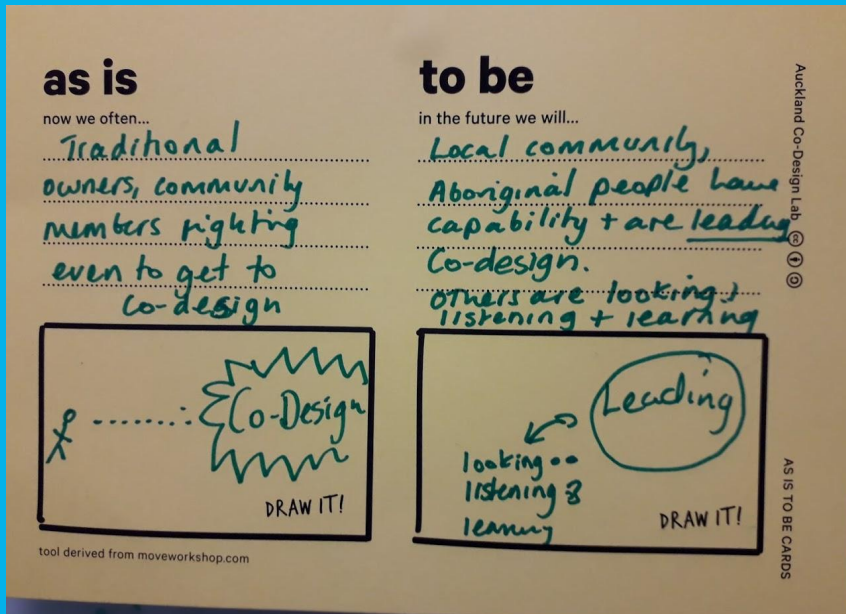 as is
now we often...
Traditional
owners, community
members fighting
even to get to
co-design
Co-Design
DRAW IT!
tool derived from moveworkshop.com
to be
in the future we will...
Local community,
Aboriginal people have
capability + are leading
Co-design.
others are looking,
listening + learning
Leading
looking
listening &
learning
DRAW IT!
Auckland Co-Design Lab
AS IS TO BE CARDS